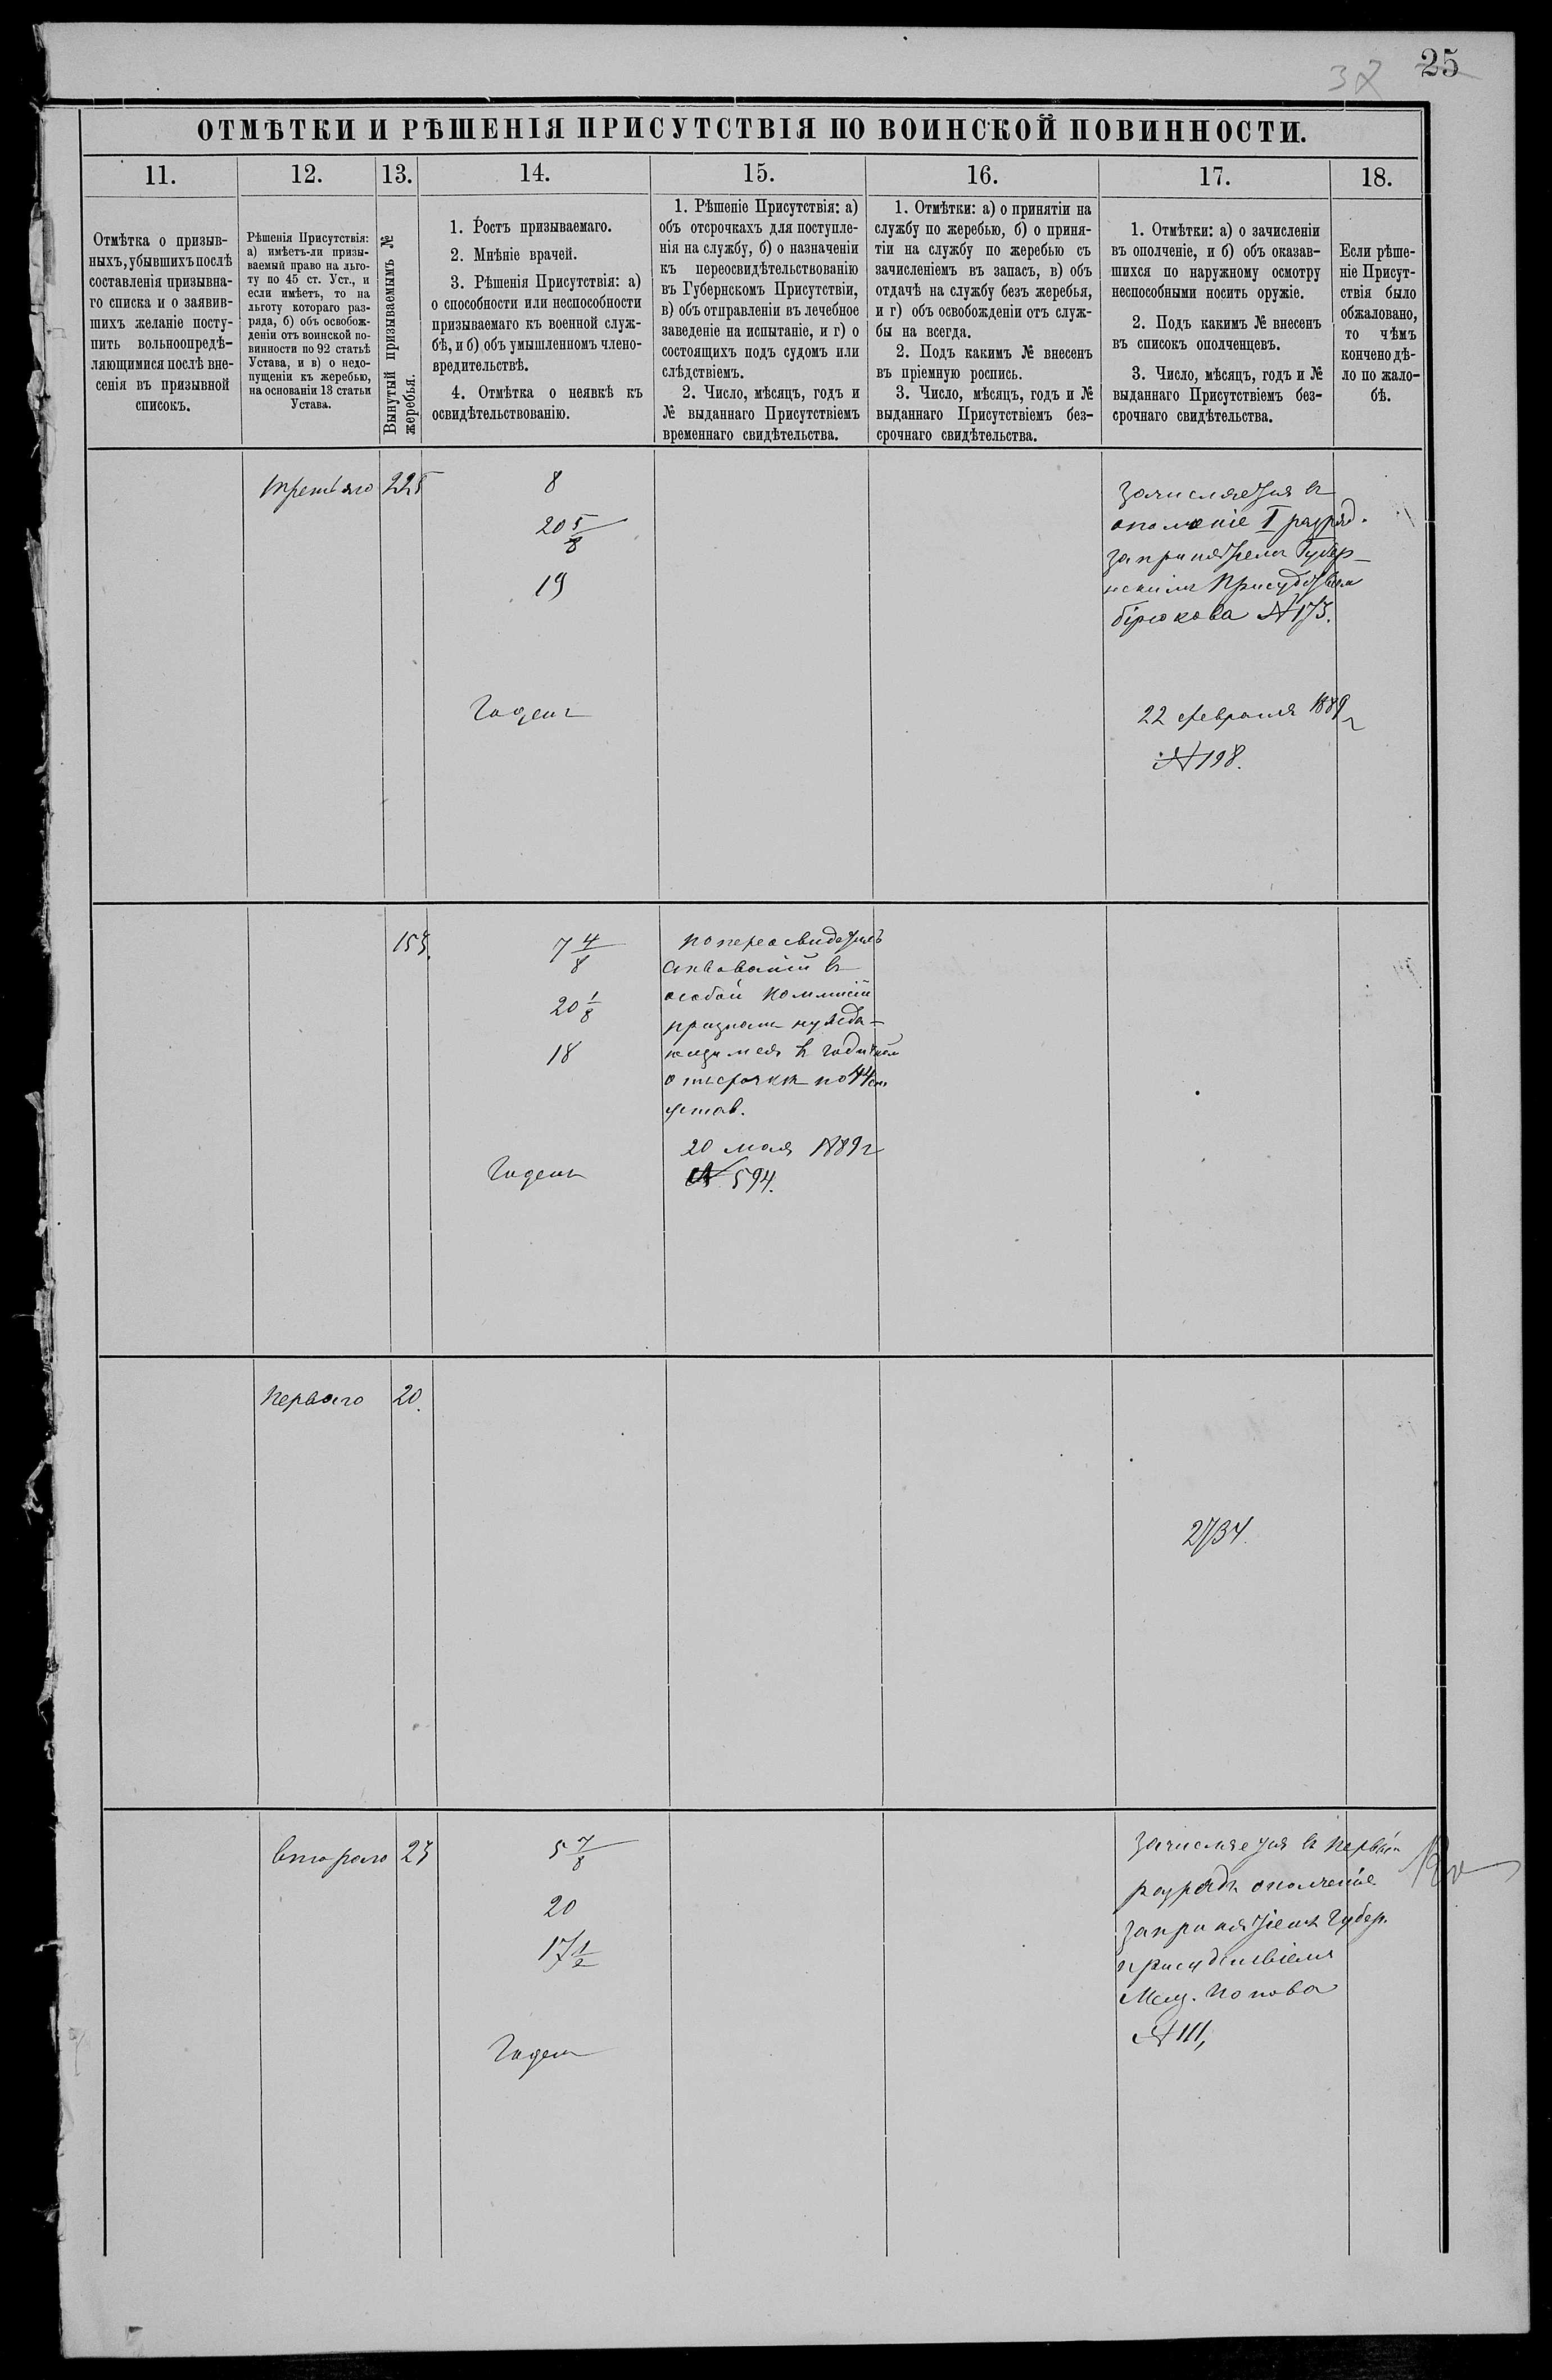 25
37
ОТМѢТКИ И РѢШЕНІЯ ПРИСУТСТВІЯ ПО ВОИНСКОЙ ПОВИННОСТИ.
11.
Отмѣтка о призыв-
ныхъ, убывшихъ послѣ
составленія призывна-
го списка и о заявив-
шихъ желаніе посту-
пить вольноопредѣ-
ляющимися послѣ вне-
сенія въ призывной
списокъ.
12.
Рѣшенія Присутствія:
а) имѣетъ-ли призы-
ваемый право на льго-
ту по 45 ст. Уст., и
если имѣетъ, то на
льготу котораго раз-
ряда, б) объ освобож-
деніи отъ воинской по-
винности по 92 статьѣ
Устава, и в) о недо-
пущеніи къ жеребью,
на основаніи 13 статьи
Устава.
13.
Вынутый призываемымъ №
жеребья.
14.
1. Ростъ призываемаго.
2. Мнѣніе врачей.
3. Рѣшенія Присутствія: а)
о способности или неспособности
призываемаго къ военной служ-
бѣ, и б) объ умышленномъ члено-
вредительствѣ.
4. Отмѣтка о неявкѣ къ
освидѣтельствованію.
15.
1. Рѣшеніе Присутствія: а)
объ отсрочкахъ для поступле-
нія на службу, б) о назначеніи
къ переосвидѣтельствованію
въ Губернскомъ Присутствіи,
в) объ отправленіи въ лечебное
заведеніе на испытаніе, и г) о
состоящихъ подъ судомъ или
слѣдствіемъ.
2. Число, мѣсяцъ, годъ и
№ выданнаго Присутствіемъ
временнаго свидѣтельства.
16.
1. Отмѣтки: а) о принятіи на
службу по жеребью, б) о приня-
тіи на службу по жеребью съ
зачисленіемъ въ запасъ, в) объ
отдачѣ на службу безъ жеребья,
и г) объ освобожденіи отъ служ-
бы на всегда.
2. Подъ какимъ № внесенъ
въ пріемную роспись.
3. Число, мѣсяцъ, годъ и №
выданнаго Присутствіемъ без-
срочнаго свидѣтельства.
17.
1. Отмѣтки: а) о зачисленіи
въ ополченіе, и б) объ оказав-
шихся по наружному осмотру
неспособными носить оружіе.
2. Подъ какимъ № внесенъ
въ списокъ ополченцевъ.
3. Число, мѣсяцъ, годъ и №
выданнаго Присутствіемъ без-
срочнаго свидѣтельства.
18.
Если рѣше-
ніе Присут-
ствія было
обжаловано,
то чѣмъ
кончено дѣ-
ло по жало-
бѣ.
третьяго
225
8
20 5/8
19
Годенъ
зачисляется въ
ополченіе I разряд.
за принятіемъ Губер-
нскимъ Присудствіем
Бірюкова № 175.
22 февраля 1889 г
№ 198.
153.
7 4/8
20 1/8
18
Годенъ
по переосвидетель
ствованіи въ
особой Коммисіи
признанъ нужда-
ющимся въ годичной
отсрочкѣ по 44 ст.
устав.
20 мая 1889 г
№ 594.
Перваго
20.
2734.
втораго
23
5 7/8
20
17 1/2
Годенъ
зачисляется въ первый
разрядъ ополченіе
за принятіемъ Губер.
присудствіемъ
Мещ. Попова
№ 111,